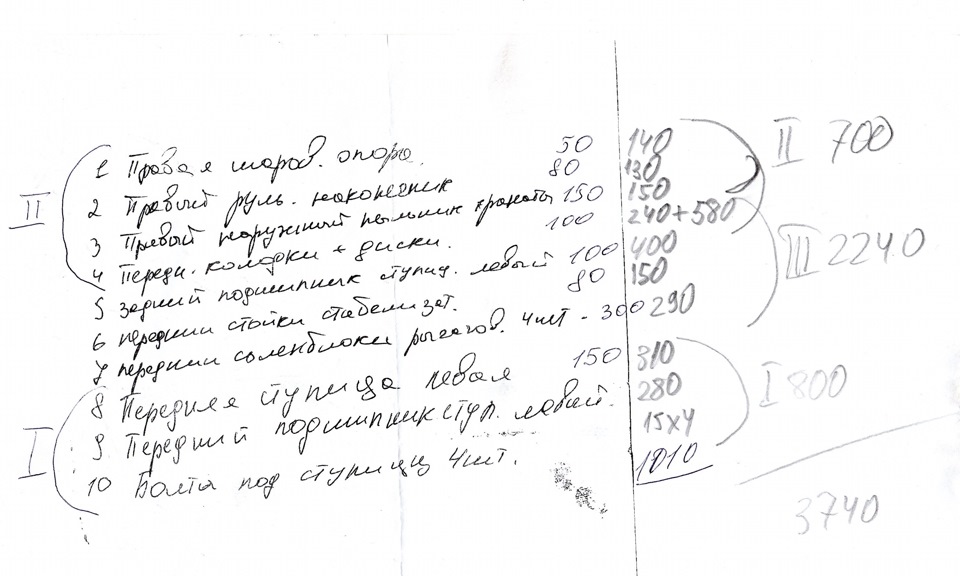 II
1 Правая шаров. опора. 50 140
2 Правый руль. наконечник 80 130
3 Правый наружный пыльник гранаты 150 150
4 Передн. колодки + диски. 100 240+580
5 Задний подшипник ступиц. левый 100 400
6 передний стойки стабелизат. 80 150
7 передний саленблоки рычагов. 4шт - 300 290
I
8 Передняя ступица левая 150 310
9 Передний подшипник ступ. левый. 280
10 Болты под ступицу 4шт. 15x4
1010
II 700
III 2240
I 800
3740